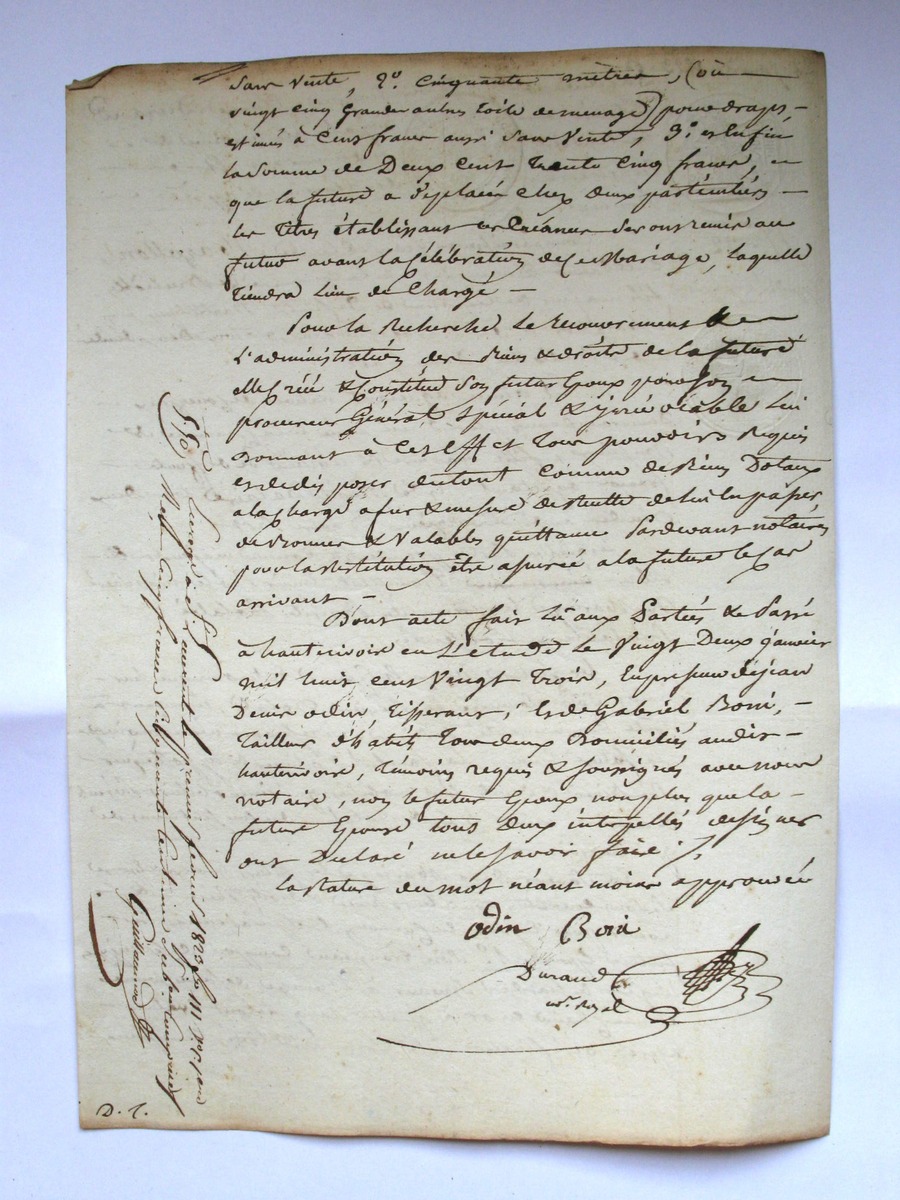 sans vente, 2º. cinquante mètres, (où
vingt cinq grandes aulnes toile de menage) pour draps
estimés à cent francs aussi sans vente, 3º. et enfin
la somme de Deux cent trente cinq francs,
que la future a dit placée chez deux particuliers
les titres établissant ces Créances seront remis au
futur avant la Célébration de ce Mariage, laquelle
tiendra lieu de Chargé
Pour la Recherche le recouvrement &
L'administration des Biens & droits de la future
elle Créé & Constitue son futur Epoux pour son
procureur Général Spécial & irrévocable lui
Donnant à cet Effet tous pouvoirs Requis
et de disposer du tout comme de Biens Dotaux
a la Charge a fur & mesure de Recette de lui en passer
de Bonnes & Valables quittances Pardevant notaires
pour la restitution être assurée a la future le cas
arrivant
Dont acte fait Lû aux Parties & Passé
à hauterivoire en L'etude le Vingt Deux Janvier
mil huit cent Vingt Trois, En présence de jean
Denis odin, Tisserant, & de Gabriel Boni,
Tailleur d'habits tous deux Domiciliés audit
hauterivoire, témoins requis & soussignés avec nous
notaire, non le futur Epoux non plus que la
future Epouse tous deux interpellés de signer
ont Déclaré ne le savoir faire ./.
la rature du mot néant moins approuvée
odin Boni
Durand
nre. Royal
Enregé à St. Laurent le premier fevrier 1823 fo. 111
Reçu Cinq francs Cinquante Centimes
Guillermond
D. T.